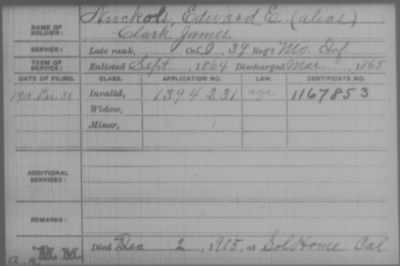 NAME OF SOLDIER: Nuckols, Edward E. (alias)
Clark James
SERVICE: Late rank, Co. I, 39 Reg't Mo. Inf.
TERM OF SERVICE: Enlisted Sept , 1864 Discharged Mar. , 1865
DATE OF FILING. CLASS. APPLICATION NO. LAW. CERTIFICATE NO.
1910 31 Invalid, 1394231 age 1167853
Widow,
Minor,
ADDITIONAL SERVICES:
REMARKS:
Died Dec 2, 1915, at Sol Home Cal
M. M.